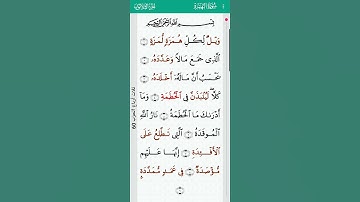 سُورَةُ الهُمَزَةِ
بِسْمِ اللَّهِ الرَّحْمَٰنِ الرَّحِيمِ
وَيْلٌ لِّكُلِّ هُمَزَةٍ لُّمَزَةٍ
الَّذِى جَمَعَ مَالًا وَعَدَّدَهُۥ
يَحْسَبُ أَنَّ مَالَهُۥٓ أَخْلَدَهُۥ
كَلَّا لَيُنۢبَذَنَّ فِى الْحُطَمَةِ وَمَآ
أَدْرَىٰكَ مَا الْحُطَمَةُ نَارُ اللَّهِ
الْمُوقَدَةُ الَّتِى تَطَّلِعُ عَلَى
الْأَفْـِٔدَةِ إِنَّهَا عَلَيْهِم
مُّؤْصَدَةٌ فِى عَمَدٍ مُّمَدَّدَةٍۭ